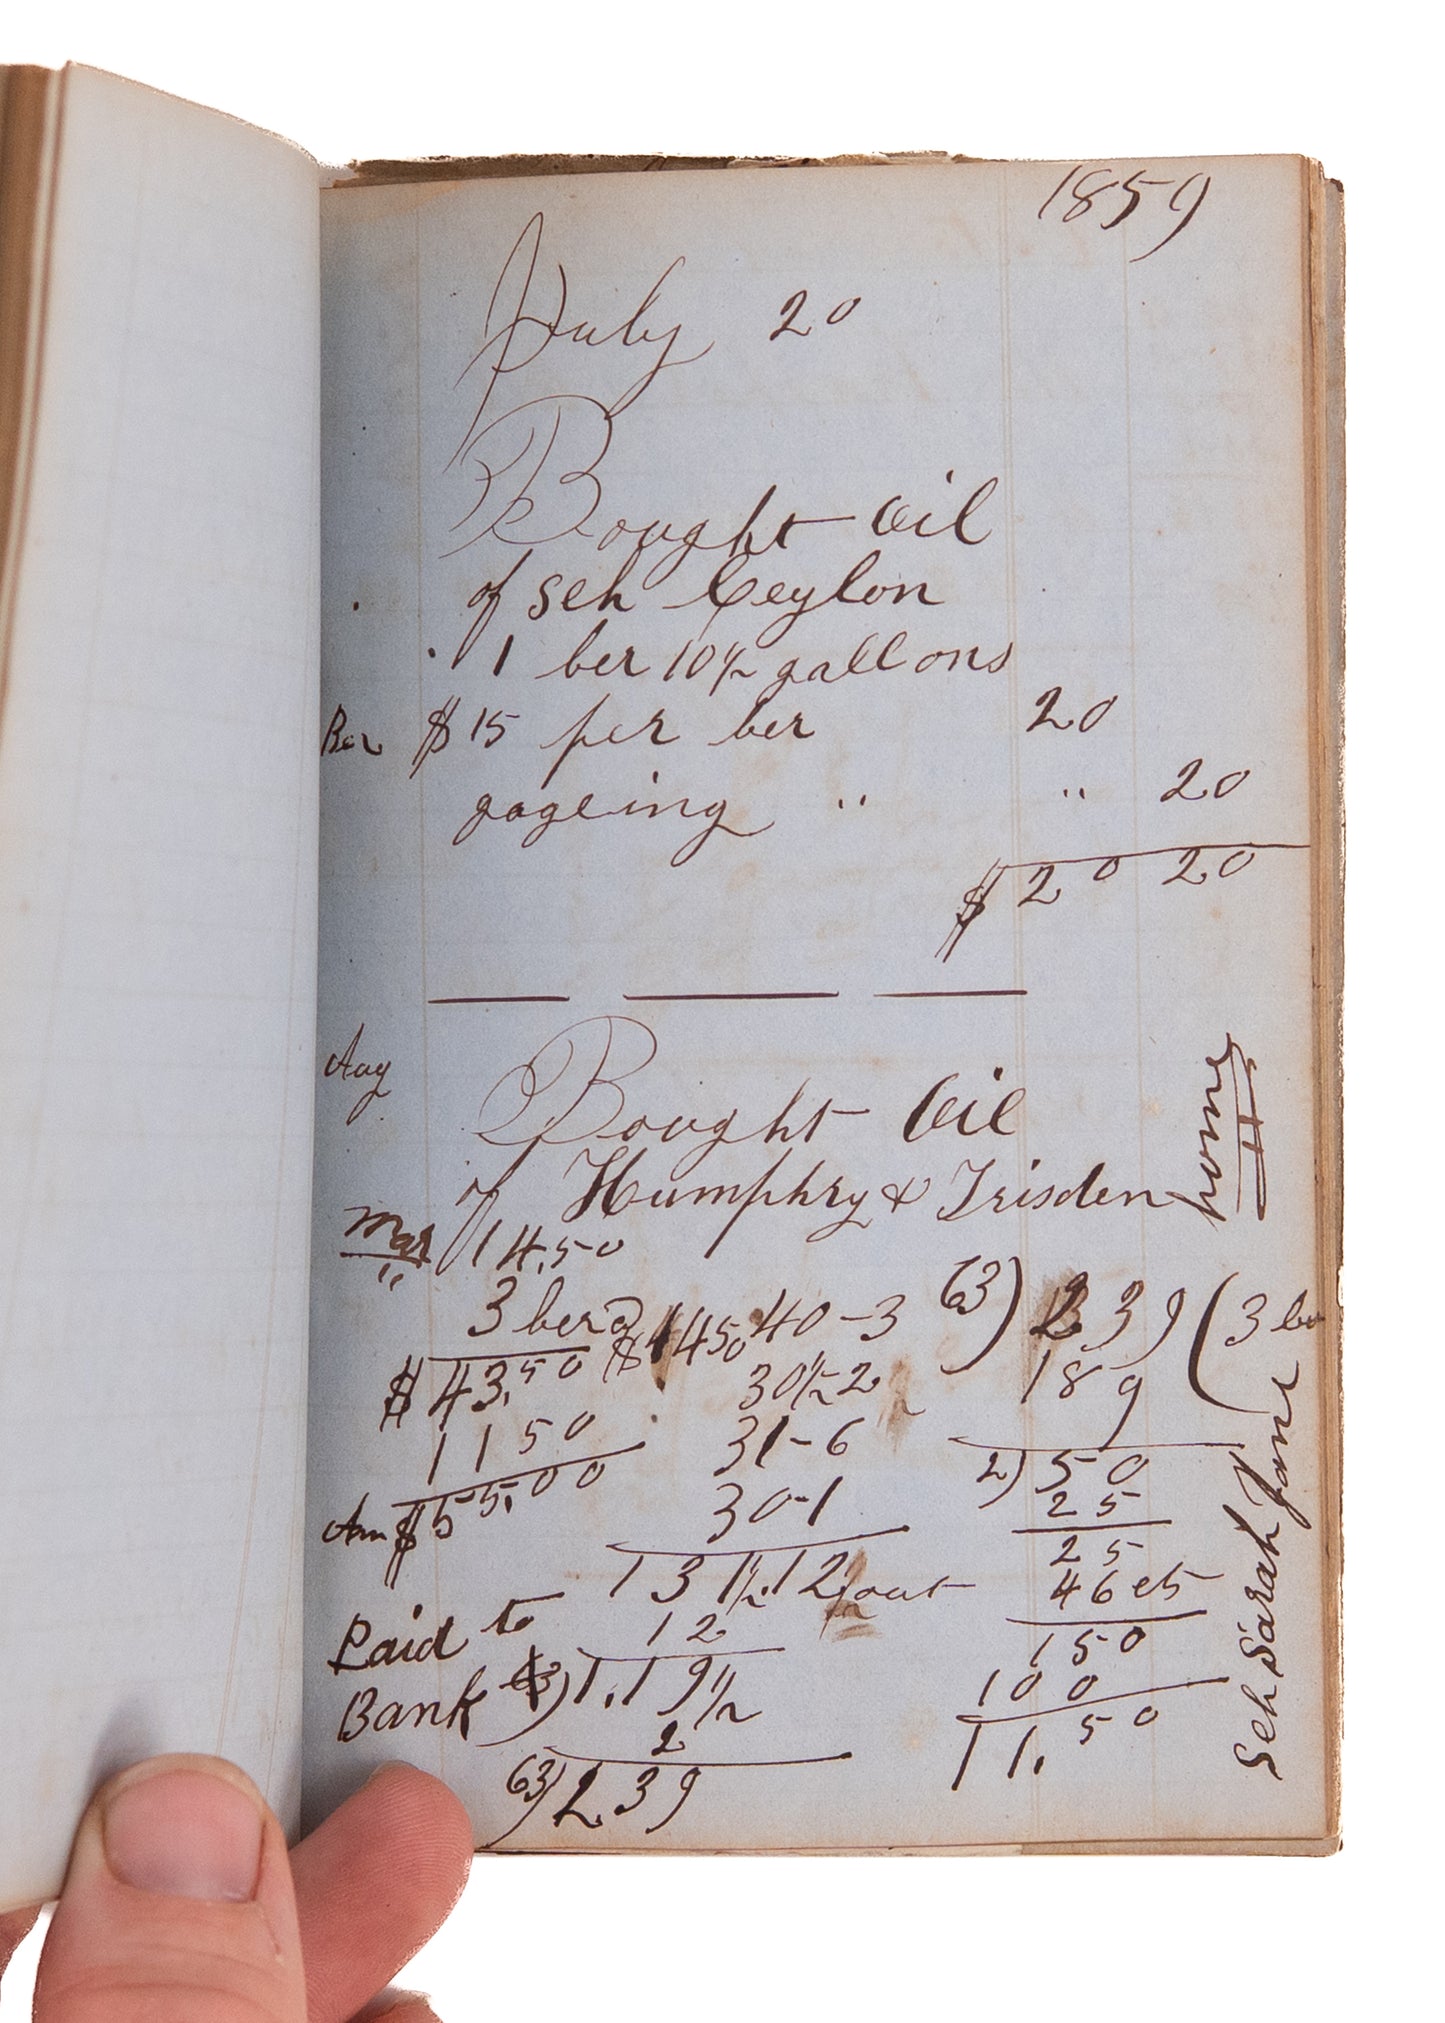 1859
July 20
Bought Oil
of Seh Ceylon
1 ber 10 1/2 gallons
Ber $15 per ber 20
gageing " " 20
$20 20
Aug
Bought Oil
of Humphry & Trisden
home
Mar 14,50
"
3 ber @ $14 50 40-3
$43,50 30 1/2 2
11 50 31-6
Am $55,00 30-1
131 1/2. 12 out
12
Paid to
Bank 63) 1.19 1/2
2
63) 239
63) 239 (3 ber
189
2) 50
25
25
46 cts
150
100
11.50
Seh Sarah Jane